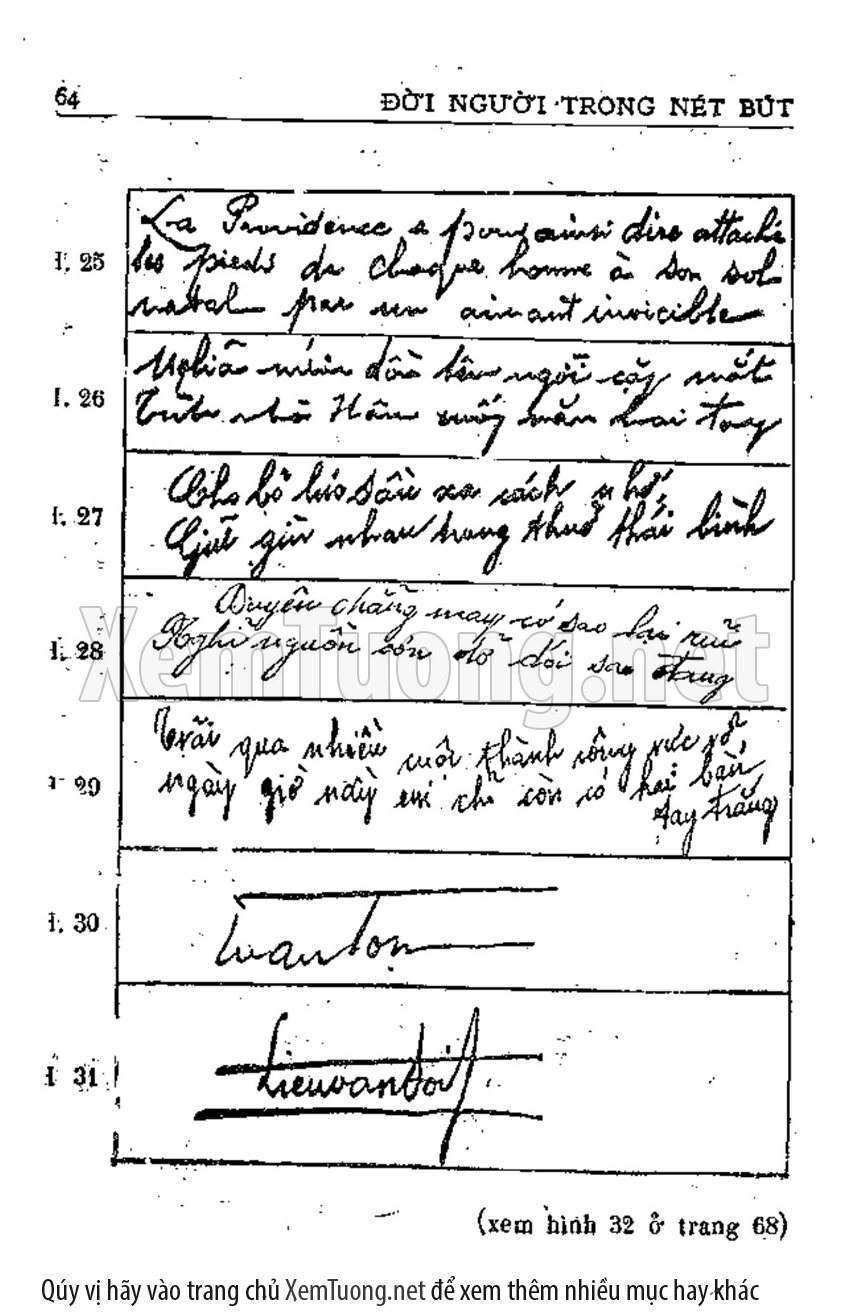 64 ĐỜI NGƯỜI TRONG NÉT BÚT
I. 25
La Providence a pour ainsi dire attaché
les pieds de chaque homme à son sol
natal par un aimant invicible
I. 26
Nghĩa mình đôi bên ngồi cặp mắt
nhà Hán xuống nắm hai tay
I. 27
Cho bỏ lúc sầu xa cách nhớ,
Giữ gìn nhau trong thuở thái bình
I. 28
Duyên chăng may cớ sao lại rủi
Nghĩ nguồn cơn dở dói sao đang
I 29
Trải qua nhiều cuộc thành công rực rỡ
ngày giờ nầy chỉ còn có hai bàn
tay trắng
I. 30
I 31
Lieuvanboi
(xem hình 32 ở trang 68)
XemTuong.net
Qúy vị hãy vào trang chủ XemTuong.net để xem thêm nhiều mục hay khác